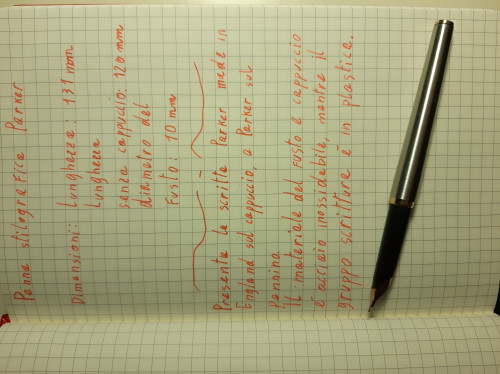 Penna stilografica Parker
Dimensioni: Lunghezza: 131 mm
Lunghezza
senza cappuccio: 120 mm
diametro del
Fusto: 10 mm
Presenta le scritte Parker made in
England sul cappuccio, e Parker sul
pennino.
Il materiale del fusto e cappuccio
è acciaio inossidabile, mentre il
gruppo scrittura è in plastica.